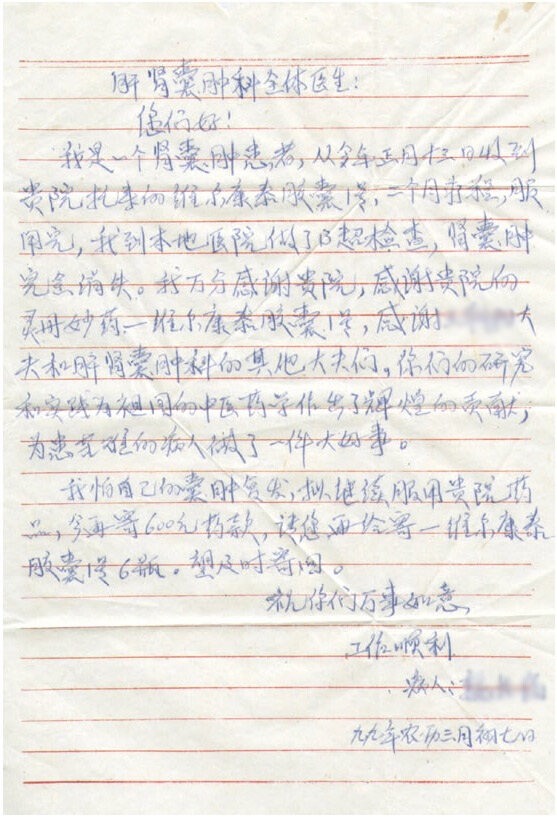 肝肾囊肿科全体医生：
您们好！
我是一个肾囊肿患者，从今年正月十三日收到
贵院扎来的维尔康泰胶囊1号，二个月疗程，服
用完，我到本地医院做了B超检查，肾囊肿
完全消失。我万分感谢贵院，感谢贵院的
灵丹妙药—维尔康泰胶囊1号，感谢 大
夫和肝肾囊肿科的其他大夫们，你们的研究
和实践为祖国的中医药学作出了辉煌的贡献，
为患 的病人做了一件大好事。
我怕自己的囊肿复发，拟继续服用贵院药
品，今再寄600元药款，请您再给寄一维尔康泰
胶囊1号6瓶。望及时寄回。
祝你们万事如意
工作顺利
病人：
九九年农历三月初七日